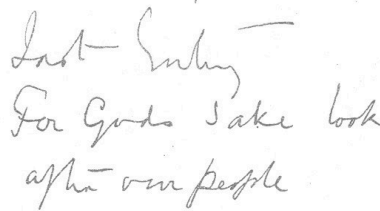 Last Entry
For Gods Sake look
after our people